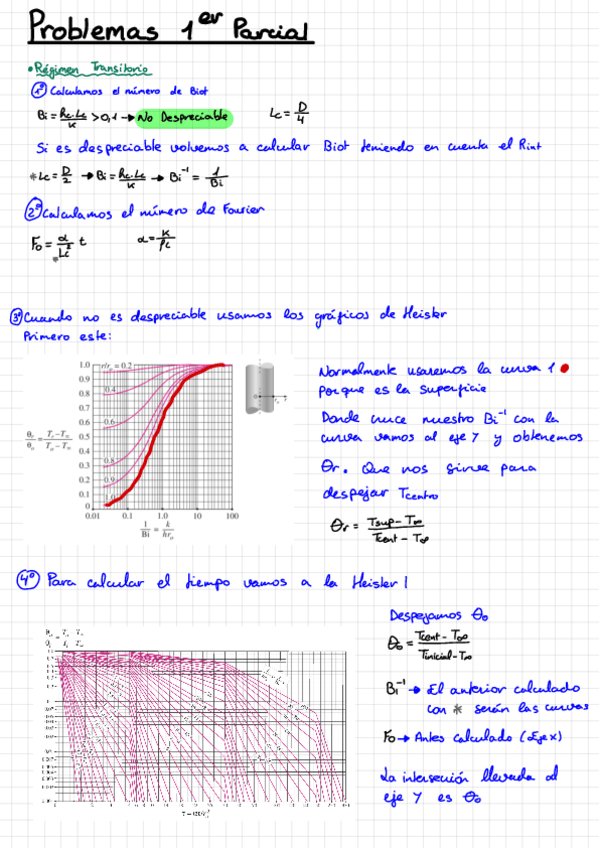 Problemas 1er Parcial
• Régimen Transitorio
1º Calculamos el número de Biot
Bi = hc·Lc/K > 0,1 → No Despreciable Lc = D/4
Si es despreciable volvemos a calcular Biot teniendo en cuenta el Rint
*Lc = D/2 → Bi = hc·Lc/K → Bi⁻¹ = 1/Bi
2º Calculamos el número de Fourier
Fo = α/Lc² t α = K/ρc
*
3º Cuando no es despreciable usamos los gráficos de Heisler
Primero este:
1.0
0.9
0.8
0.7
0.6
0.5
0.4
0.3
0.2
0.1
0
r/r₀ = 0.2
0.4
0.6
0.8
0.9
1.0
0.01 0.1 1.0 10 100
1/Bi = k/hr₀
Normalmente usaremos la curva 1
porque es la superficie
Donde cruce nuestro Bi⁻¹ con la
curva vamos al eje Y y obtenemos
θr. Que nos sirve para
despejar Tcentro
θr = Tsup - T∞/Tcent - T∞
4º Para calcular el tiempo vamos a la Heisler 1
Despejamos θo
θo = Tcent - T∞/Tinicial - T∞
Bi⁻¹ → El anterior calculado
con * serán las curvas
Fo → Antes calculado (Eje X)
La intersección llevada al
eje Y es θo